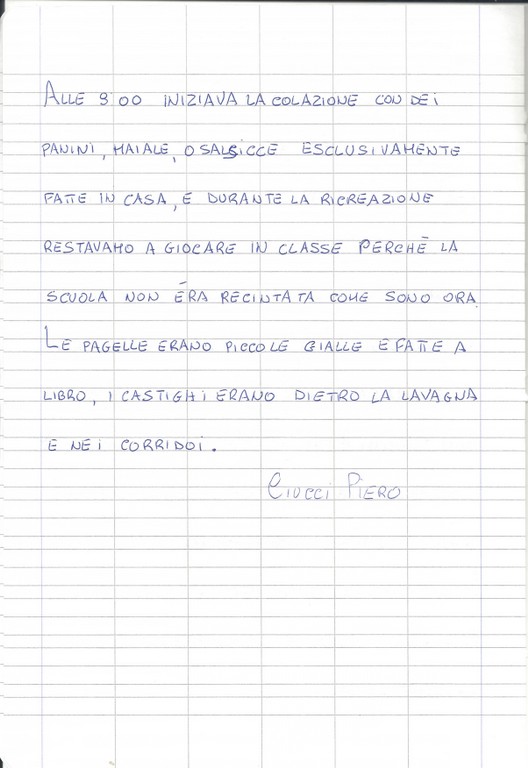 ALLE 9:00 INIZIAVA LA COLAZIONE CON DEI
PANINI, MAIALE, O SALSICCE ESCLUSIVAMENTE
FATTE IN CASA, E DURANTE LA RICREAZIONE
RESTAVAMO A GIOCARE IN CLASSE PERCHÈ LA
SCUOLA NON ÉRA RECINTATA COME SONO ORA.
LE PAGELLE ERANO PICCOLE GIALLE E FATTE A
LIBRO, I CASTIGHI ERANO DIETRO LA LAVAGNA
E NEI CORRIDOI.
CIUCCI PIERO